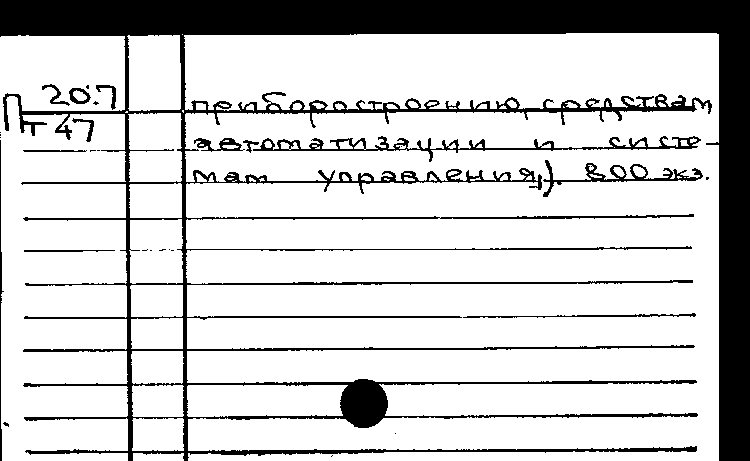 П 20.7
т 47
приборостроению, средствам
автоматизации и систе-
мам управления). 800 экз.